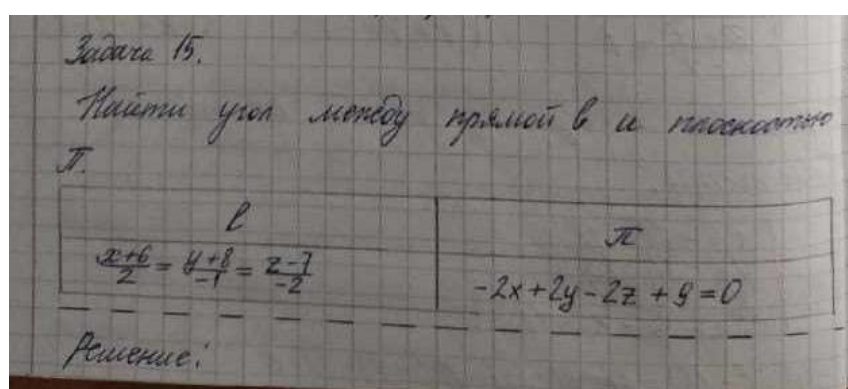 Задача 15.
Найти угол между прямой l и плоскостью
π.
l
π
x+6/2 = y+8/-1 = z-7/-2
-2x+2y-2z+9=0
Решение: